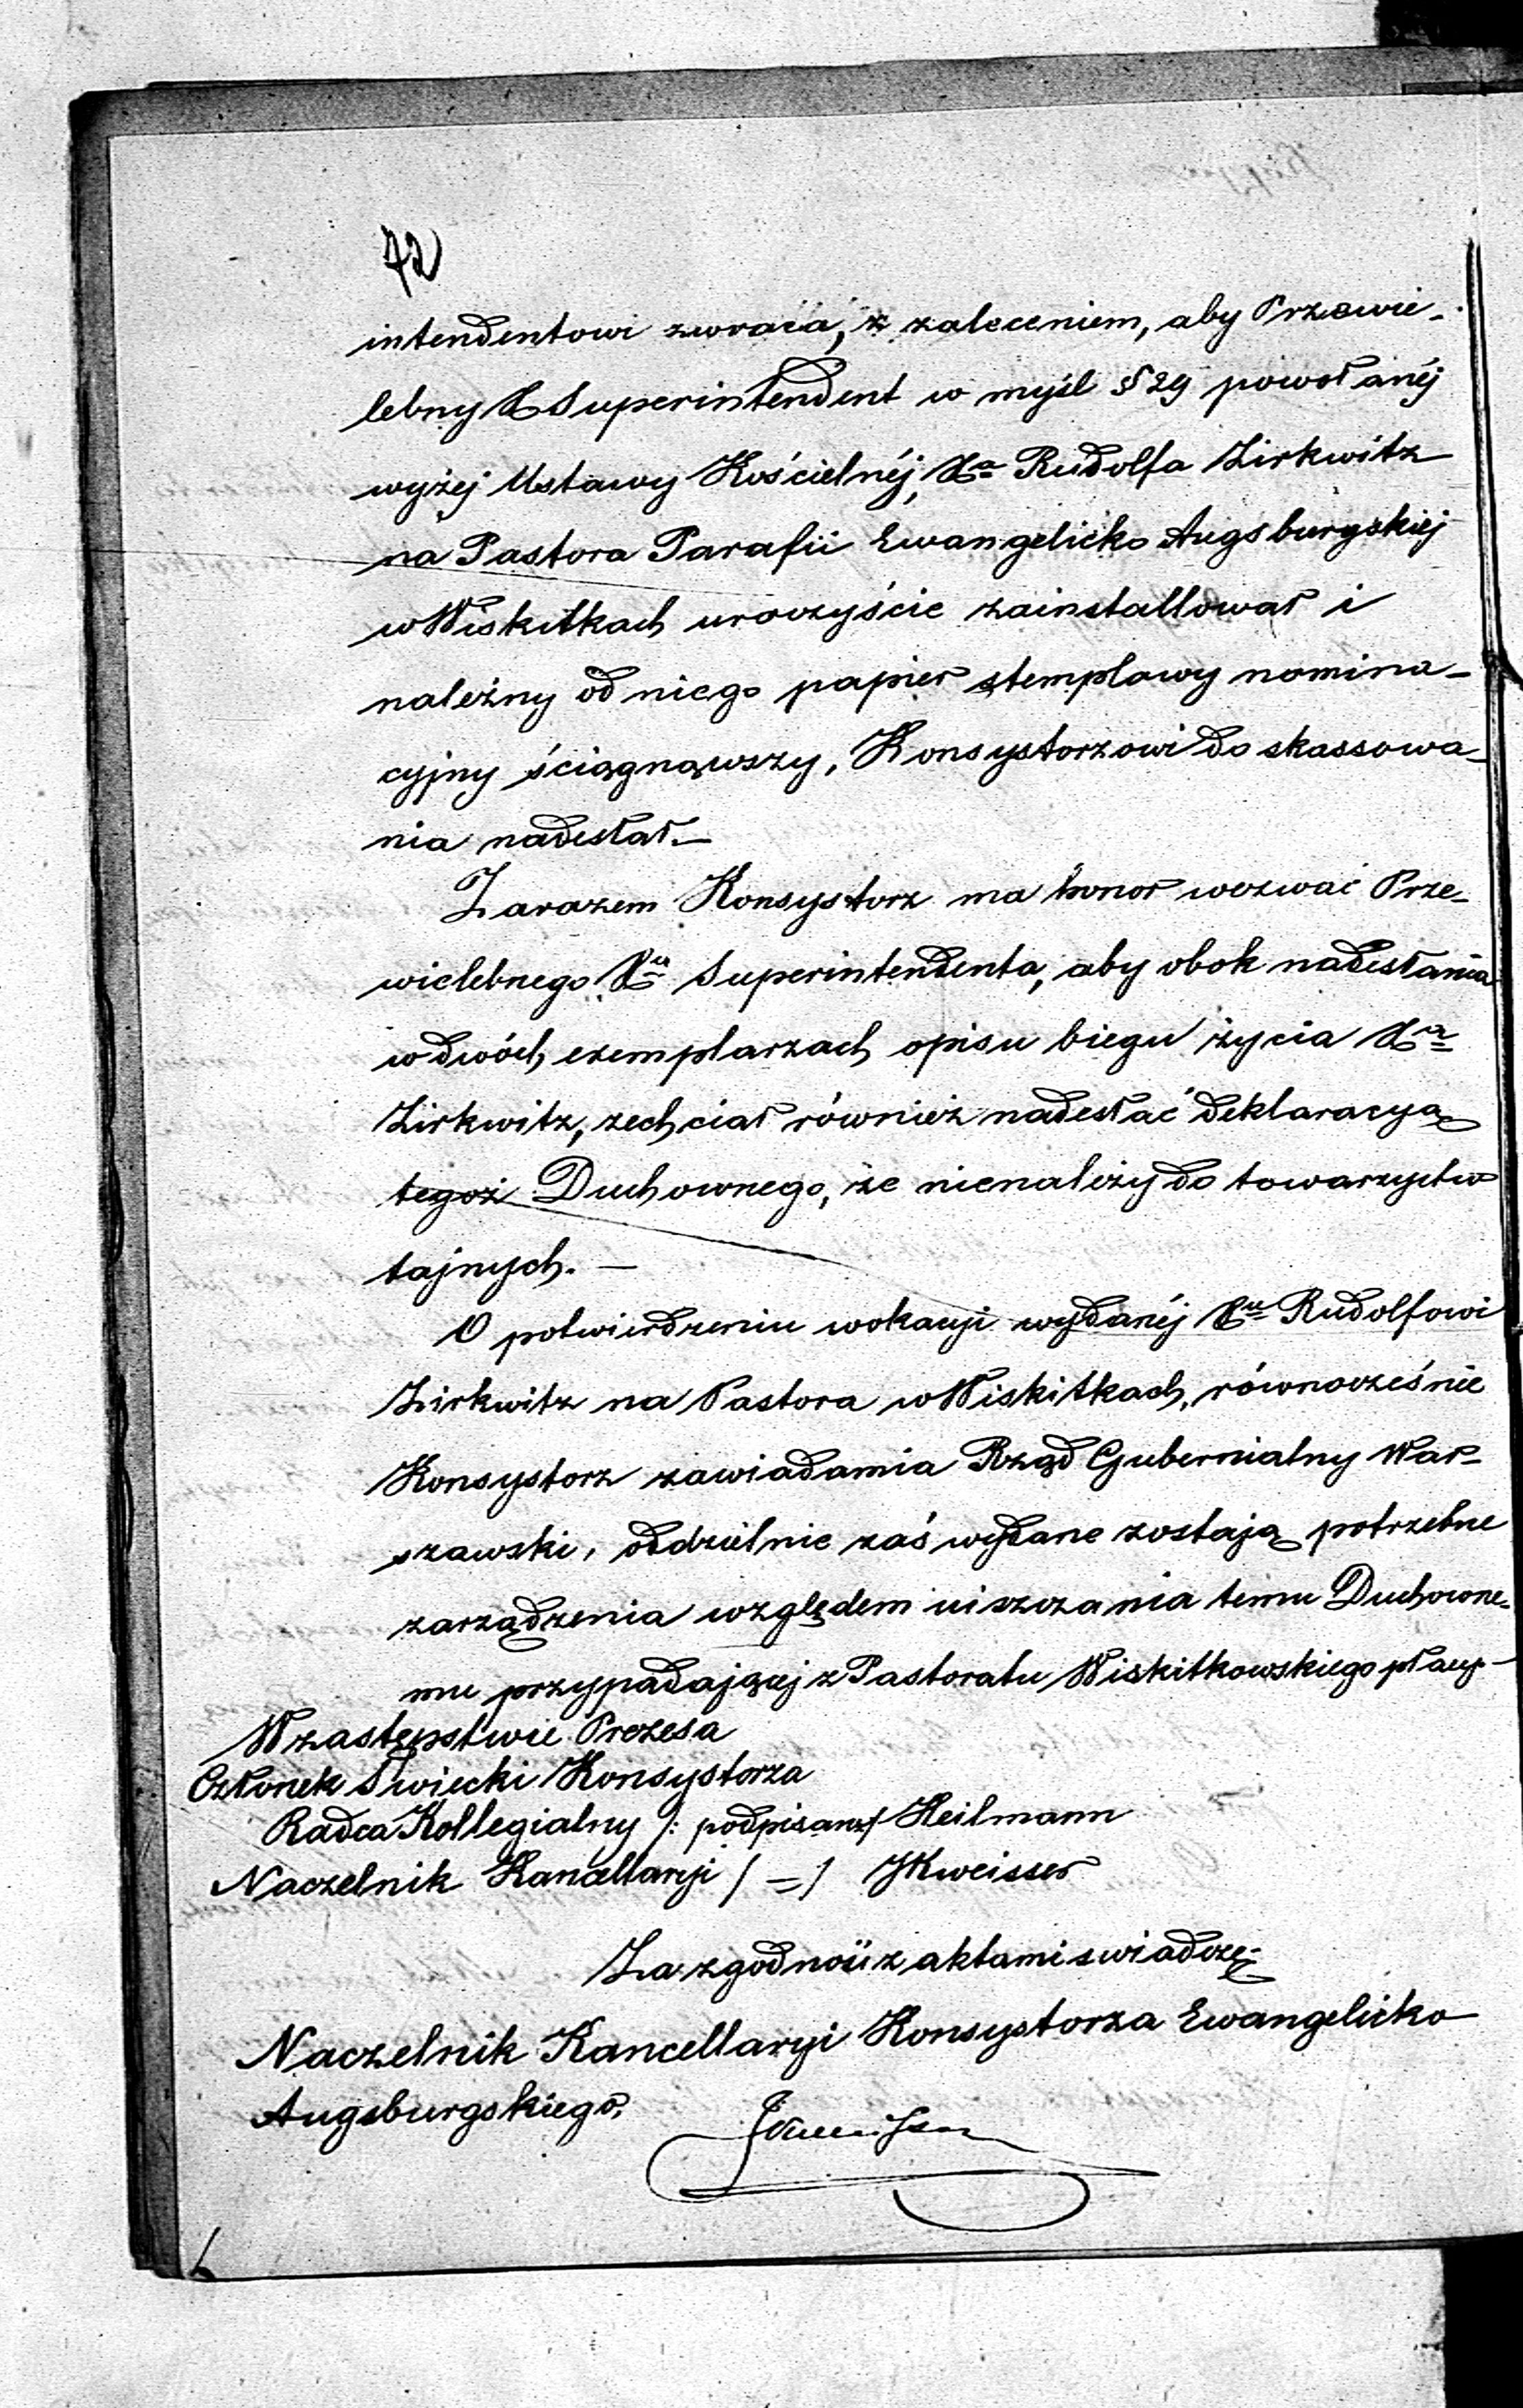 72
intendentowi zwraca, z zaleceniem, aby Przewie-
lebny X Superintendent w myśl § 29 powołanéj
wyżej Ustawy Kościelnéj, Xa Rudolfa Zirkwitz
na Pastora Parafii Ewangelicko Augsburgskiej
w Wiskitkach uroczyście zainstallował i
należny od niego papier stemplowy nomina-
cyjny ściągnąwszy, Konsystorzowi do skassowa-
nia nadesłał.—
Zarazem Konsystorz ma honor wezwać Prze-
wielebnego Xa Superintendenta, aby obok nadesłania
w dwóch exemplarzach opisu biegu życia Xa
Zirkwitz, zechciał również nadesłać deklaracyą
tegoż Duchownego, że nienależy do towarzystw
tajnych. —
O potwierdzeniu wokacyi wydanéj Xu Rudolfowi
Zirkwitz na Pastora w Wiskitkach, równocześnie
Konsystorz zawiadamia Rząd Gubernialny War-
szawski, oddzielnie zaś wydane zostają potrzebne
zarządzenia względem uiszczania temu Duchowne-
mu przypadającej z Pastoratu Wiskitkowskiego płacy.—
W zastępstwie Prezesa
Członek Świecki Konsystorza
Radca Kollegialny /: podpisany/ Heilmann
Naczelnik Kancellaryi / = / JKweisser
Za zgodność z aktami swiadczę:
Naczelnik Kancellaryi Konsystorza Ewangelicko
Augsburgskiego.